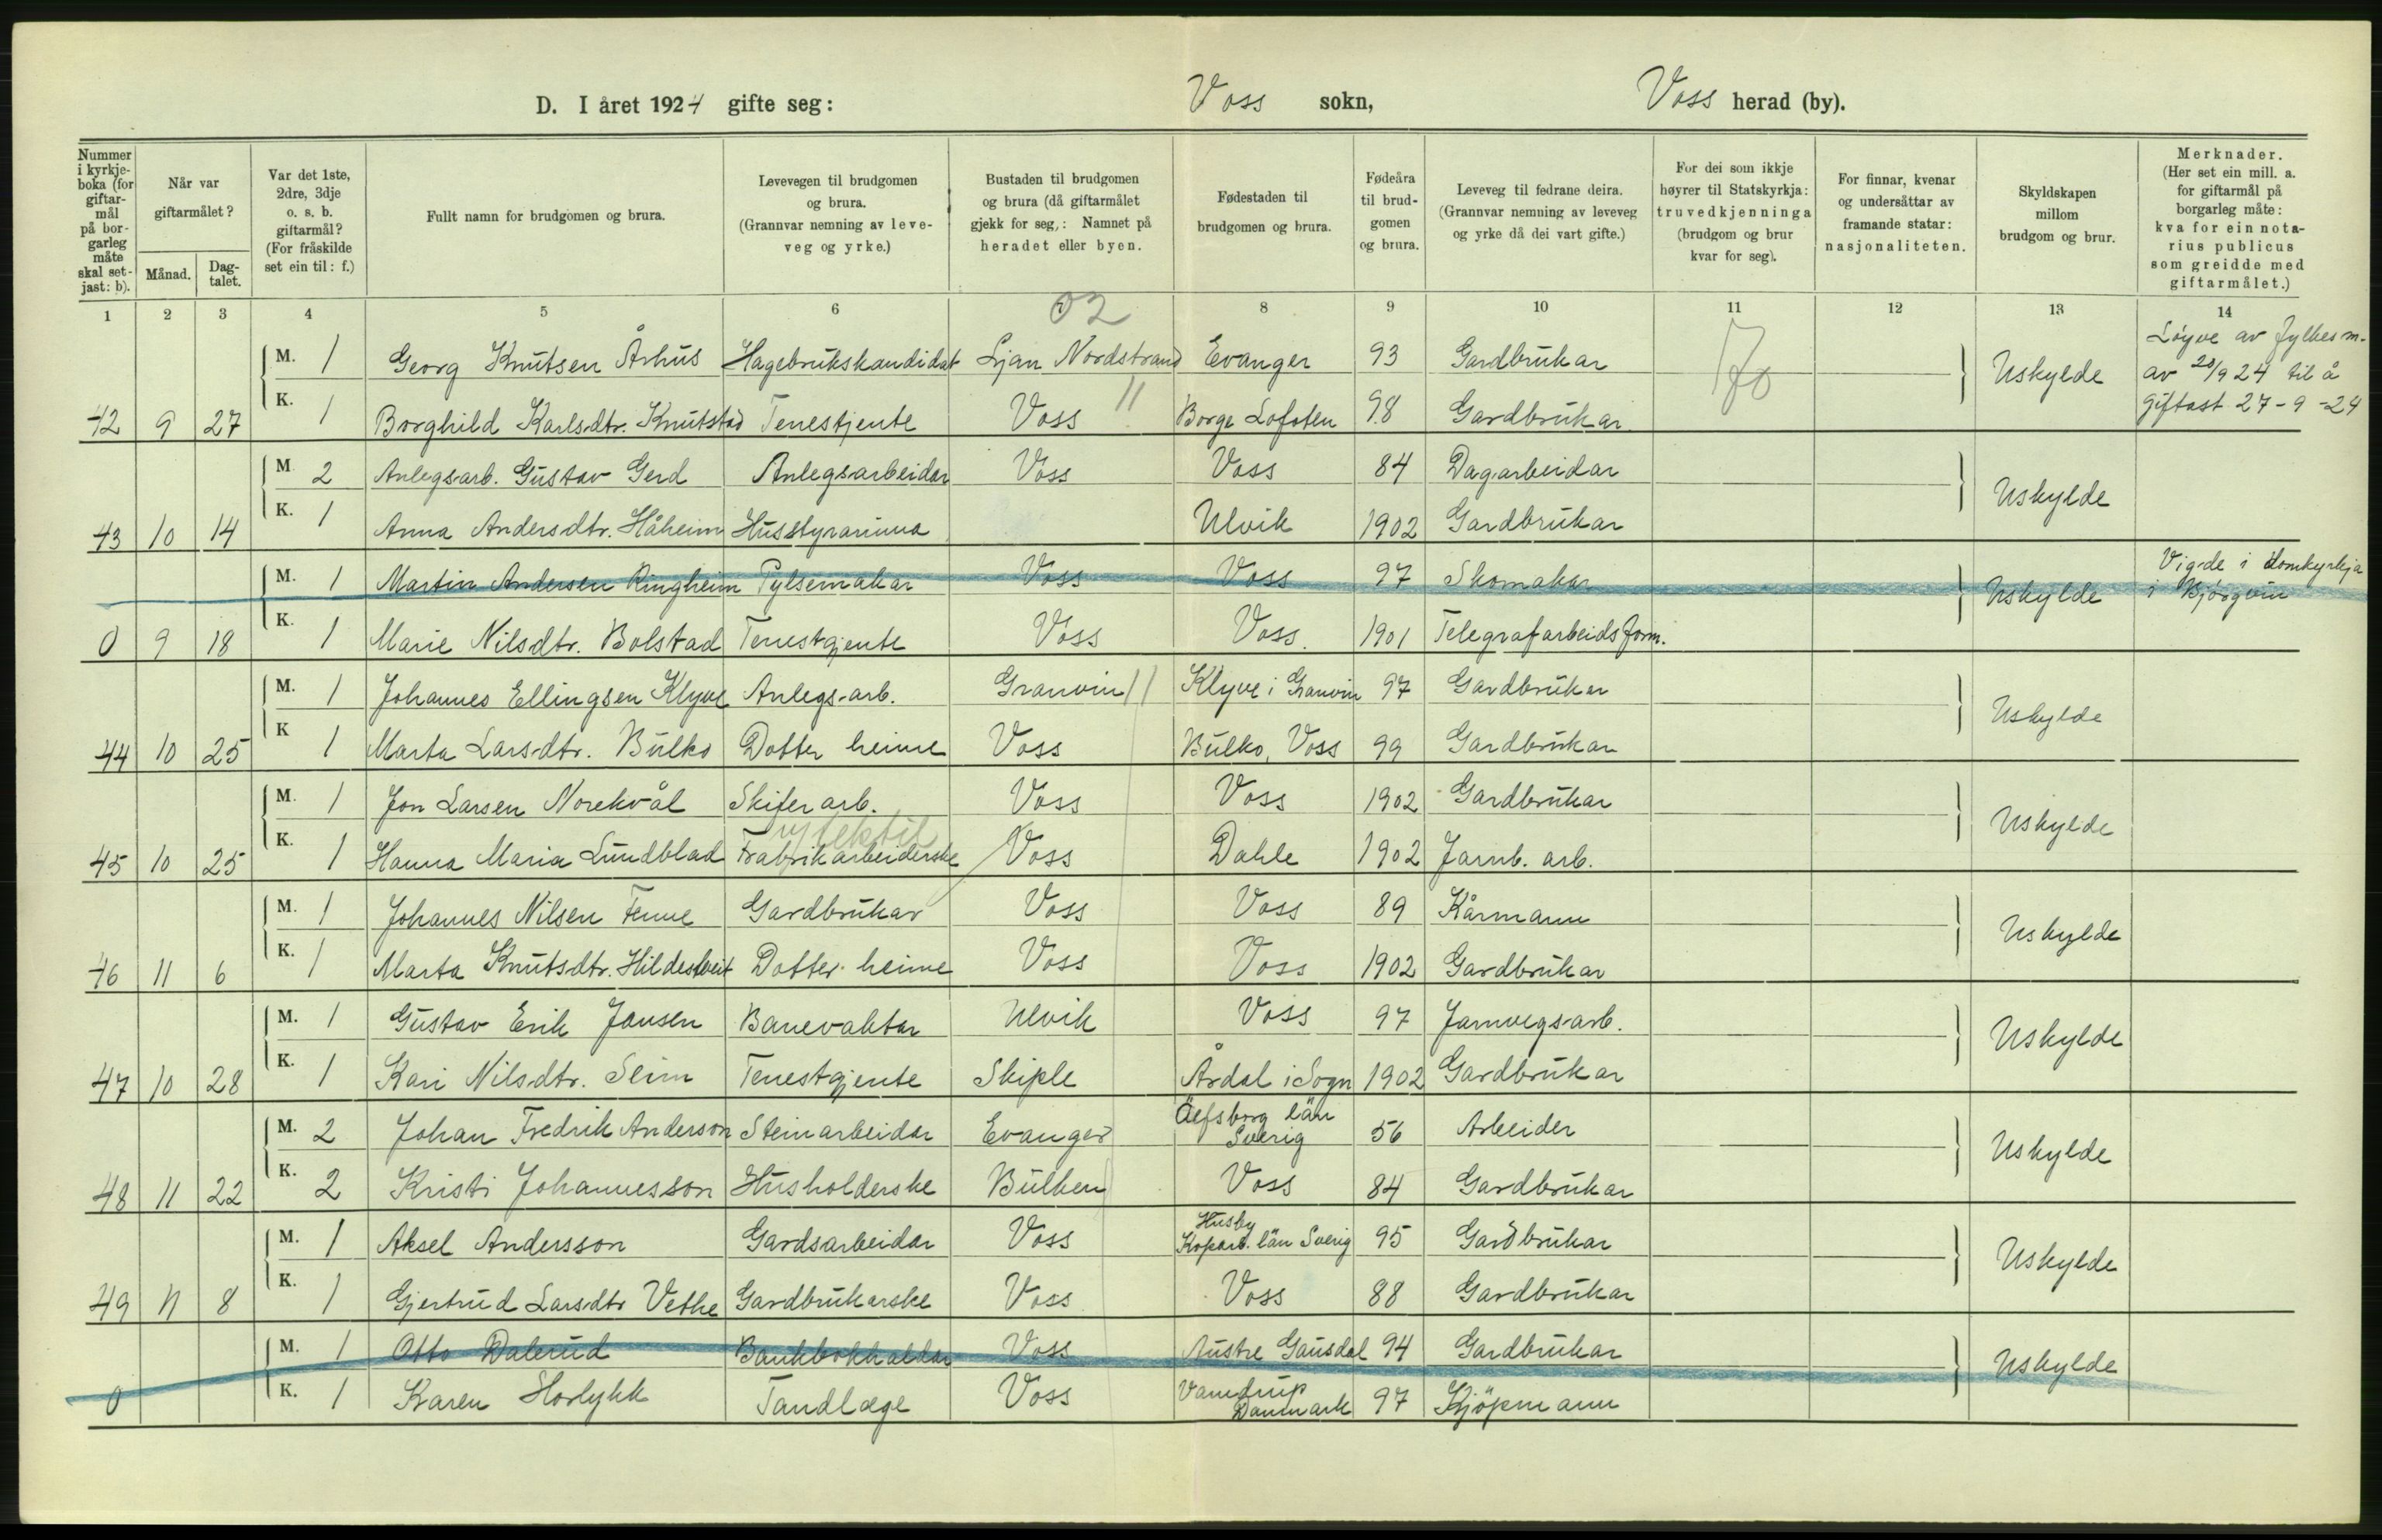 D. I året 1924 gifte seg: Voss sokn, Voss herad (by).
Nummer i kyrkje-boka (for giftar-mål på bor-garleg måte skal set-jast: b).
Når var giftarmålet?
Månad.
Dag-talet.
Var det 1ste, 2dre, 3dje o. s. b. giftarmål? (For fråskilde set ein til: f.)
Fullt namn for brudgomen og brura.
Levevegen til brudgomen og brura. (Grannvar nemning av leve-veg og yrke.)
Bustaden til brudgomen og brura (då giftarmålet gjekk for seg,: Namnet på heradet eller byen.
Fødestaden til brudgomen og brura.
Fødeåra til brud-gomen og brura.
Leveveg til fedrane deira. (Grannvar nemning av leveveg og yrke då dei vart gifte.)
For dei som ikkje høyrer til Statskyrkja: truvedkjenninga (brudgom og brur kvar for seg).
For finnar, kvenar og undersåttar av framande statar: nasjonaliteten.
Skyldskapen millom brudgom og brur.
Merknader. (Her set ein mill. a. for giftarmål på borgarleg måte: kva for ein nota-rius publicus som greidde med giftarmålet.)
1 2 3 4 5 6 02 8 9 10 11 12 13 14
M. 1 Georg Knutsen Århus Hagebrukskandidat Ljan Nordstrand Evanger 93 Gardbrukar Uskylde Løyve av fylkesm. av 20/9 24 til å giftast 27-9-24
42 9 27 K. 1 Borghild Karlsdtr. Knutstad Tenestjente Voss 11 Borge Lofoten 98 Gardbrukar
M 2 Anlegsarb. Gustav Gerd Anlegsarbeidar Voss Voss 84 Dagarbeidar Uskylde
43 10 14 K. 1 Anna Andersdtr. Håheim Husstyrarinna Ulvik 1902 Gardbrukar
M. 1 Martin Andersen Ringheim Pylsemakar Voss Voss 97 Skomakar Uskylde Vigde i Domkyrkja i Bjørgvin
0 9 18 K. 1 Marie Nilsdtr. Bolstad Tenestgjente Voss Voss. 1901 Telegrafarbeidsform.
M. 1 Johannes Ellingsen Klyve Anlegs-arb. Granvin 11 Klyve i Granvin 97 Gardbrukar Uskylde
44 10 25 K 1 Marta Larsdtr. Bulko Dotter heime Voss Bulko, Voss 99 Gardbrukar
M. 1 Jon Larsen Norekvål Skiferarb. Voss Voss 1902 Gardbrukar Uskylde
45 10 25 K. 1 Hanna Maria Lundblad Fabrikarbeiderske Voss Dahle 1902 Jarnb. arb.
M. 1 Johannes Nilsen Fenne Gardbrukar Voss Voss 89 Kårmann Uskylde
46 11 6 K. 1 Marta Knutsdtr. Hildestveit Dotter heime Voss Voss 1902 Gardbrukar
M. 1 Gustav Erik Jansen Banevaktar Ulvik Voss 97 Jarnvegsarb. Uskylde
47 10 28 K. 1 Kari Nilsdtr. Seim Tenestgjente Skiple Årdal i Sogn 1902 Gardbrukar
M. 2 Johan Fredrik Anderson Steinarbeidar Evanger Älfsborg län Sverig 56 Arbeider Uskylde
48 11 22 K. 2 Kristi Johannesson Husholderske Bulken Voss 84 Gardbrukar
M. 1 Aksel Andersson Gardsarbeidar Voss Husby Koparb. län Sverig 95 Gardbrukar Uskylde
49 11 8 K. 1 Gjertrud Larsdtr Vethe Gardbrukarske Voss Voss 88 Gardbrukar
M. 1 Otto Dalerud Bankbokhaldar Voss Austre Gausdal 94 Gardbrukar Uskylde
0 K. 1 Karen Horlykk Tandlæge Voss Vamdrup Danmark 97 Kjöpmann